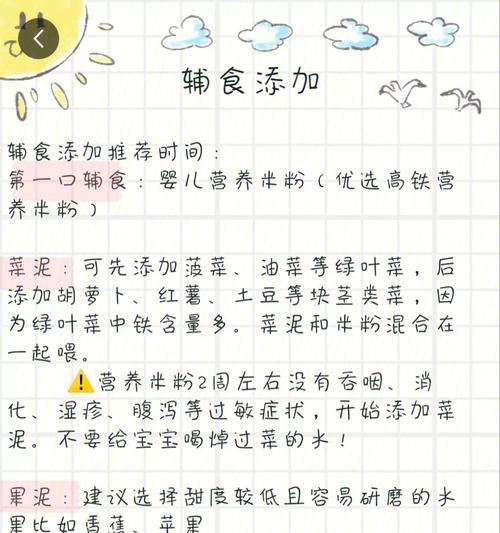 辅食添加
辅食添加推荐时间：
第一口辅食：婴儿营养米粉（优选高铁营
养米粉）
菜泥：可先添加菠菜、油菜等绿叶菜，后
添加胡萝卜、红薯、土豆等块茎类菜，因
为绿叶菜中铁含量多。菜泥和米粉混合在
一起喂。
营养米粉2周左右没有吞咽、消
化、湿疹、腹泻等过敏症状，开始添加菜
泥。不要给宝宝喝焯过菜的水！
果泥：建议选择甜度较低且容易研磨的水
果比如香蕉、苹果